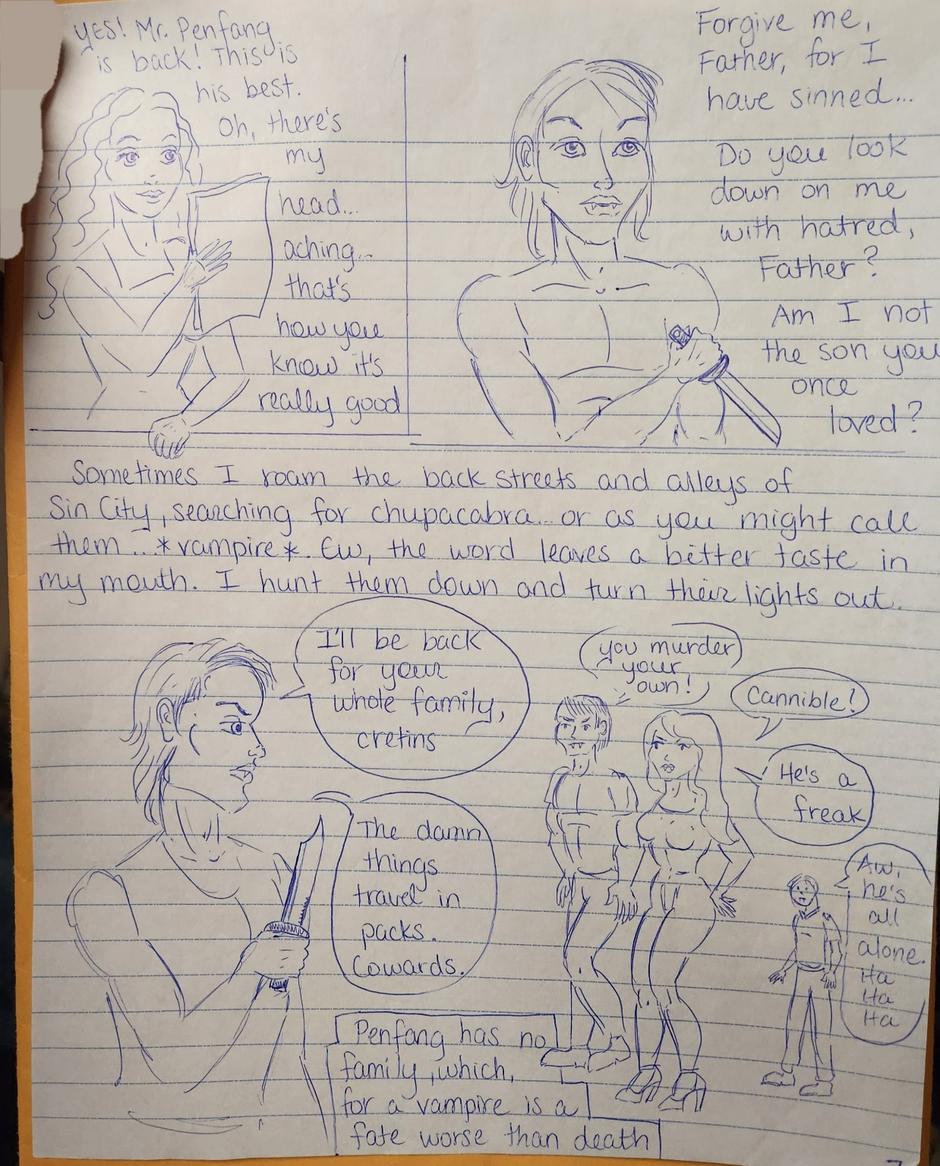 YES! Mr. Penfang
is back! This is
his best.
Oh, there's
my
head...
aching...
that's
how you
know it's
really good
Forgive me,
Father, for I
have sinned...
Do you look
down on me
with hatred,
Father?
Am I not
the son you
once
loved?
Sometimes I roam the back streets and alleys of
Sin City, searching for chupacabra... or as you might call
them... *vampire*. Ew, the word leaves a bitter taste in
my mouth. I hunt them down and turn their lights out.
I'll be back
for your
whole family,
cretins
The damn
things
travel in
packs.
Cowards.
you murder
your
own!
Cannible!
He's a
freak
Aw,
he's
all
alone.
Ha
Ha
Ha
Penfang has no
family, which,
for a vampire is a
fate worse than death